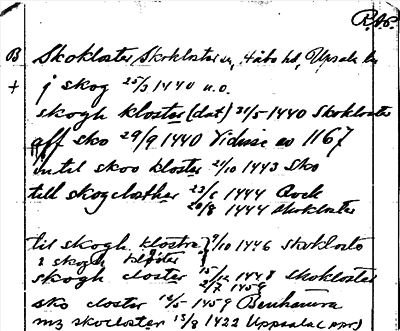 R.A.P.
B Skokloster, Skokloster sn, Håbo hd, Upsala l
+ j skog 25/3 1440 u.o.
skogh kloster (dat) 31/5 1440 Skokloster
aff sko 29/9 1440 Vidisse av 1167
in til skoo kloster 21/10 1443 Sko
till skogclosther 23/6 1444
20/8 1444 Skokloster
til skogh klostre 9/10 1446 Skokloster
i skogh kloster
skogh closter 15/12 1448 Skokloster
2/7 1459
sko closter 14/5 1459
mz skocloster 13/8 1422 Uppsala